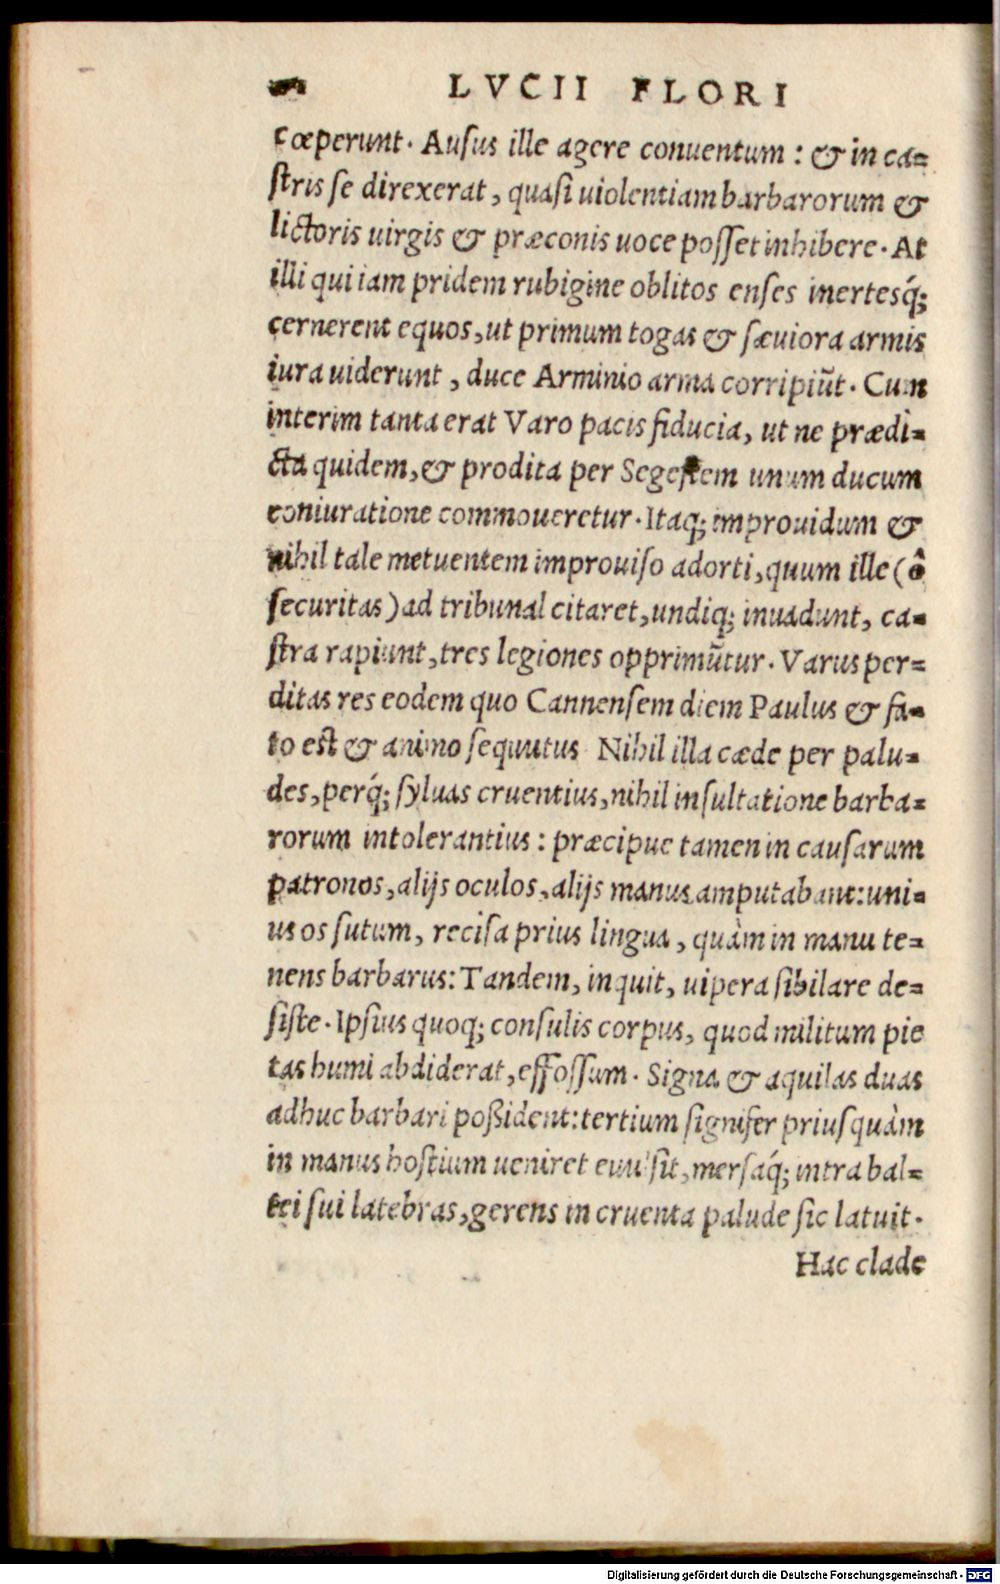 LVCII FLORI
cœperunt. Ausus ille agere conuentum: & in ca=
stris se direxerat, quasi uiolentiam barbarorum &
lictoris uirgis & præconis uoce posset inhibere. At
illi qui iam pridem rubigine oblitos enses inertesq́;
cernerent equos, ut primum togas & sæuiora armis
iura uiderunt, duce Arminio arma corripiũt. Cum
interim tanta erat Varo pacis fiducia, ut ne prædi=
cta quidem, & prodita per Segestem unum ducum
coniuratione commoueretur. Itaq; improuidum &
nihil tale metuentem improuiso adorti, quum ille (ô
securitas) ad tribunal citaret, undiq; inuadunt, ca=
stra rapiunt, tres legiones opprimũtur. Varus per=
ditas res eodem quo Cannensem diem Paulus & fa=
to est & animo sequutus Nihil illa cæde per palu=
des, perq́; syluas cruentius, nihil insultatione barba=
rorum intolerantius: præcipue tamen in causarum
patronos, alijs oculos, alijs manus amputabant: uni=
us os sutum, recisa prius lingua, quàm in manu te=
nens barbarus: Tandem, inquit, uipera sibilare de=
siste. Ipsius quoq; consulis corpus, quod militum pie
tas humi abdiderat, effossum. Signa & aquilas duas
adhuc barbari poßident: tertium signifer priusquàm
in manus hostium ueniret euulsit, mersaq́; intra bal=
tei sui latebras, gerens in cruenta palude sic latuit.
Hac clade
Digitalisierung gefördert durch die Deutsche Forschungsgemeinschaft - DFG